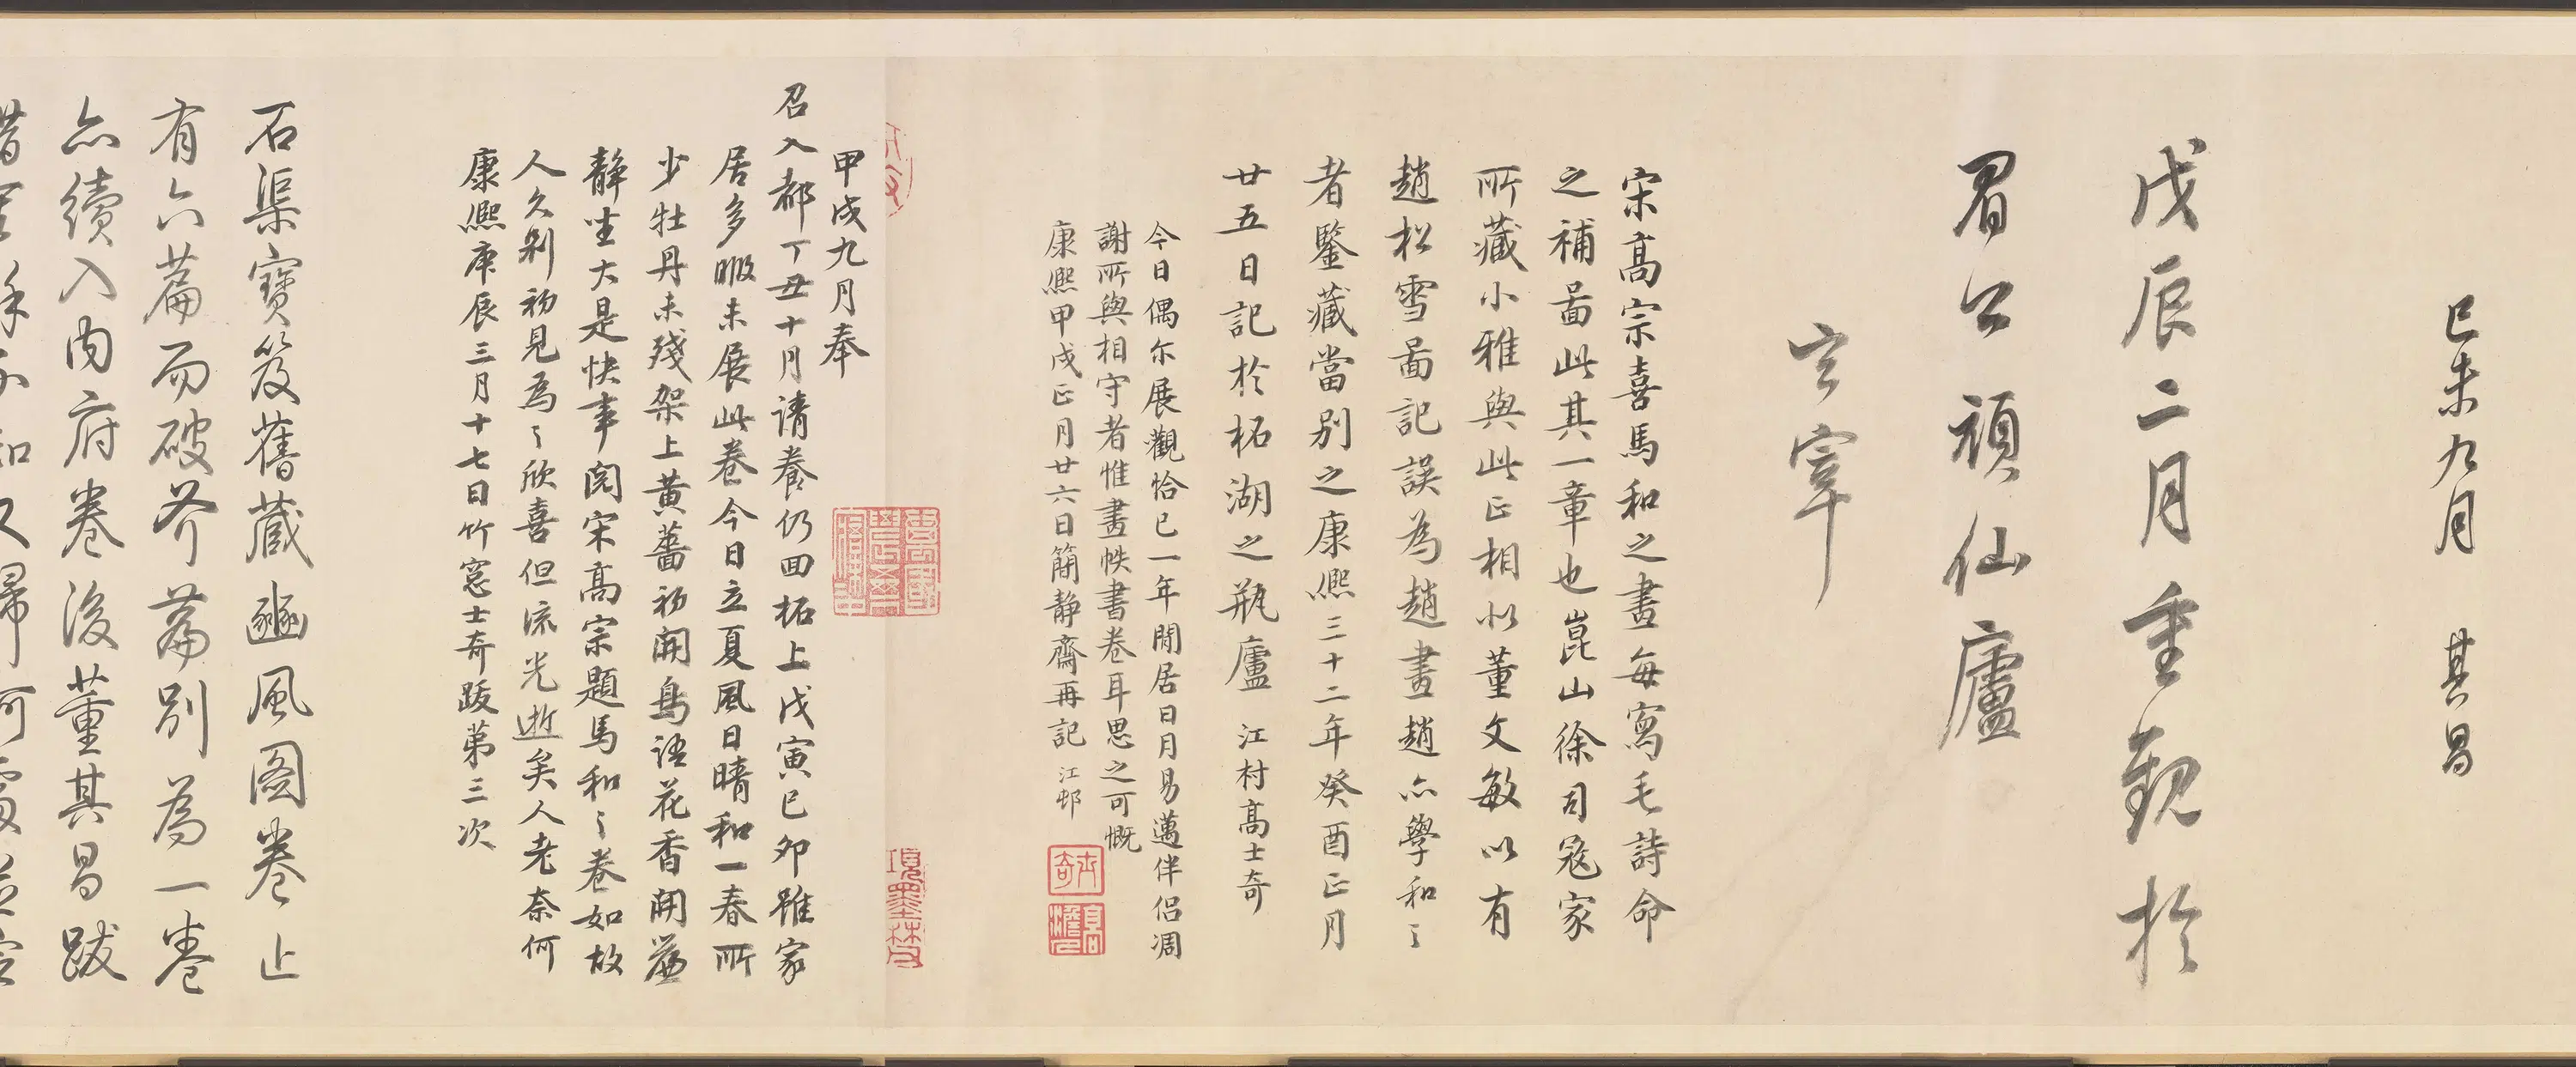 己未九月 其昌
戊辰二月重觀於
眉公頑仙廬
玄宰
宋高宗喜馬和之畫每寫毛詩命
之補啚此其一章也崑山徐司寇家
所藏小雅與此正相似董文敏以有
趙松雪啚記誤為趙畫趙亦學和〻
者鑒藏當別之康熙三十二年癸酉正月
廿五日記於柘湖之瓶廬 江村高士奇
今日偶尓展觀恰已一年閒居日月易邁伴侶凋
謝所與相守者惟畫帙書卷耳思之可慨
康熙甲戌正月廿六日簡靜齋再記 江邨
士奇
高澹人
甲戌九月奉
召入都丁丑十月請養仍回柘上戊寅己卯雖家
居多暇未展此卷今日立夏風日晴和一春所
少牡丹未殘架上黃薔初開鳥語花香開簾
靜坐大是快事閱宋高宗題馬和〻卷如故
人久別初見為〻欣喜但流光逝矣人老奈何
康熙庚辰三月十七日竹窓士奇跋第三次
石渠寶笈舊蔵豳風圖卷止
有六篇而破斧篇別為一卷
亦續入內府卷後董其昌跋